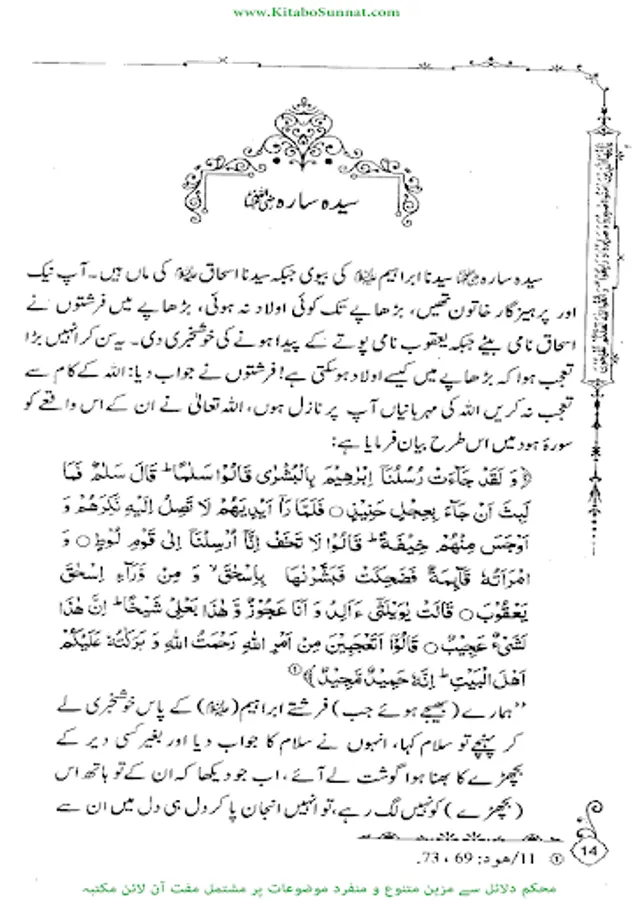 www.KitaboSunnat.com
سیدہ سارہ رضی اللہ عنہا
سیدہ سارہ رضی اللہ عنہا سیدنا ابراہیم علیہ السلام کی بیوی جبکہ سیدنا اسحاق علیہ السلام کی ماں ہیں۔ آپ نیک
اور پرہیز گار خاتون تھیں، بڑھاپے تک کوئی اولاد نہ ہوئی، بڑھاپے میں فرشتوں نے
اسحاق نامی بیٹے جبکہ یعقوب نامی پوتے کے پیدا ہونے کی خوشخبری دی۔ یہ سن کر انہیں بڑا
تعجب ہوا کہ بڑھاپے میں کیسے اولاد ہو سکتی ہے! فرشتوں نے جواب دیا: اللہ کے کام سے
تعجب نہ کریں اللہ کی مہربانیاں آپ پر نازل ہوں، اللہ تعالیٰ نے ان کے اس واقعے کو
سورۂ ہود میں اس طرح بیان فرمایا ہے:
﴿وَ لَقَدْ جَآءَتْ رُسُلُنَاۤ اِبْرٰهِیْمَ بِالْبُشْرٰی قَالُوْا سَلٰمًا ؕ قَالَ سَلٰمٌ فَمَا
لَبِثَ اَنْ جَآءَ بِعِجْلٍ حَنِیْذٍ ○ فَلَمَّا رَاٰۤ اَیْدِیَهُمْ لَا تَصِلُ اِلَیْهِ نَكِرَهُمْ وَ
اَوْجَسَ مِنْهُمْ خِیْفَةً ؕ قَالُوْا لَا تَخَفْ اِنَّاۤ اُرْسِلْنَاۤ اِلٰی قَوْمِ لُوْطٍ ○ وَ
امْرَاَتُهٗ قَآىِٕمَةٌ فَضَحِكَتْ فَبَشَّرْنٰهَا بِاِسْحٰقَ ۙ وَ مِنْ وَّرَآءِ اِسْحٰقَ
یَعْقُوْبَ ○ قَالَتْ یٰوَیْلَتٰۤی ءَاَلِدُ وَ اَنَا عَجُوْزٌ وَّ هٰذَا بَعْلِیْ شَیْخًا ؕ اِنَّ هٰذَا
لَشَیْءٌ عَجِیْبٌ ○ قَالُوْۤا اَتَعْجَبِیْنَ مِنْ اَمْرِ اللّٰهِ رَحْمَتُ اللّٰهِ وَ بَرَكٰتُهٗ عَلَیْكُمْ
اَهْلَ الْبَیْتِ ؕ اِنَّهٗ حَمِیْدٌ مَّجِیْدٌ﴾ ①
”ہمارے (بھیجے ہوئے جب) فرشتے ابراہیم (علیہ السلام) کے پاس خوشخبری لے
کر پہنچے تو سلام کہا، انہوں نے سلام کا جواب دیا اور بغیر کسی دیر کے
بچھڑے کا بھنا ہوا گوشت لے آئے، اب جو دیکھا کہ ان کے تو ہاتھ اس
(بچھڑے) کو نہیں لگ رہے، تو انہیں انجان پا کر دل ہی دل میں ان سے
① 11/هود: 69 ، 73.
14
محکم دلائل سے مزین متنوع و منفرد موضوعات پر مشتمل مفت آن لائن مکتبہ